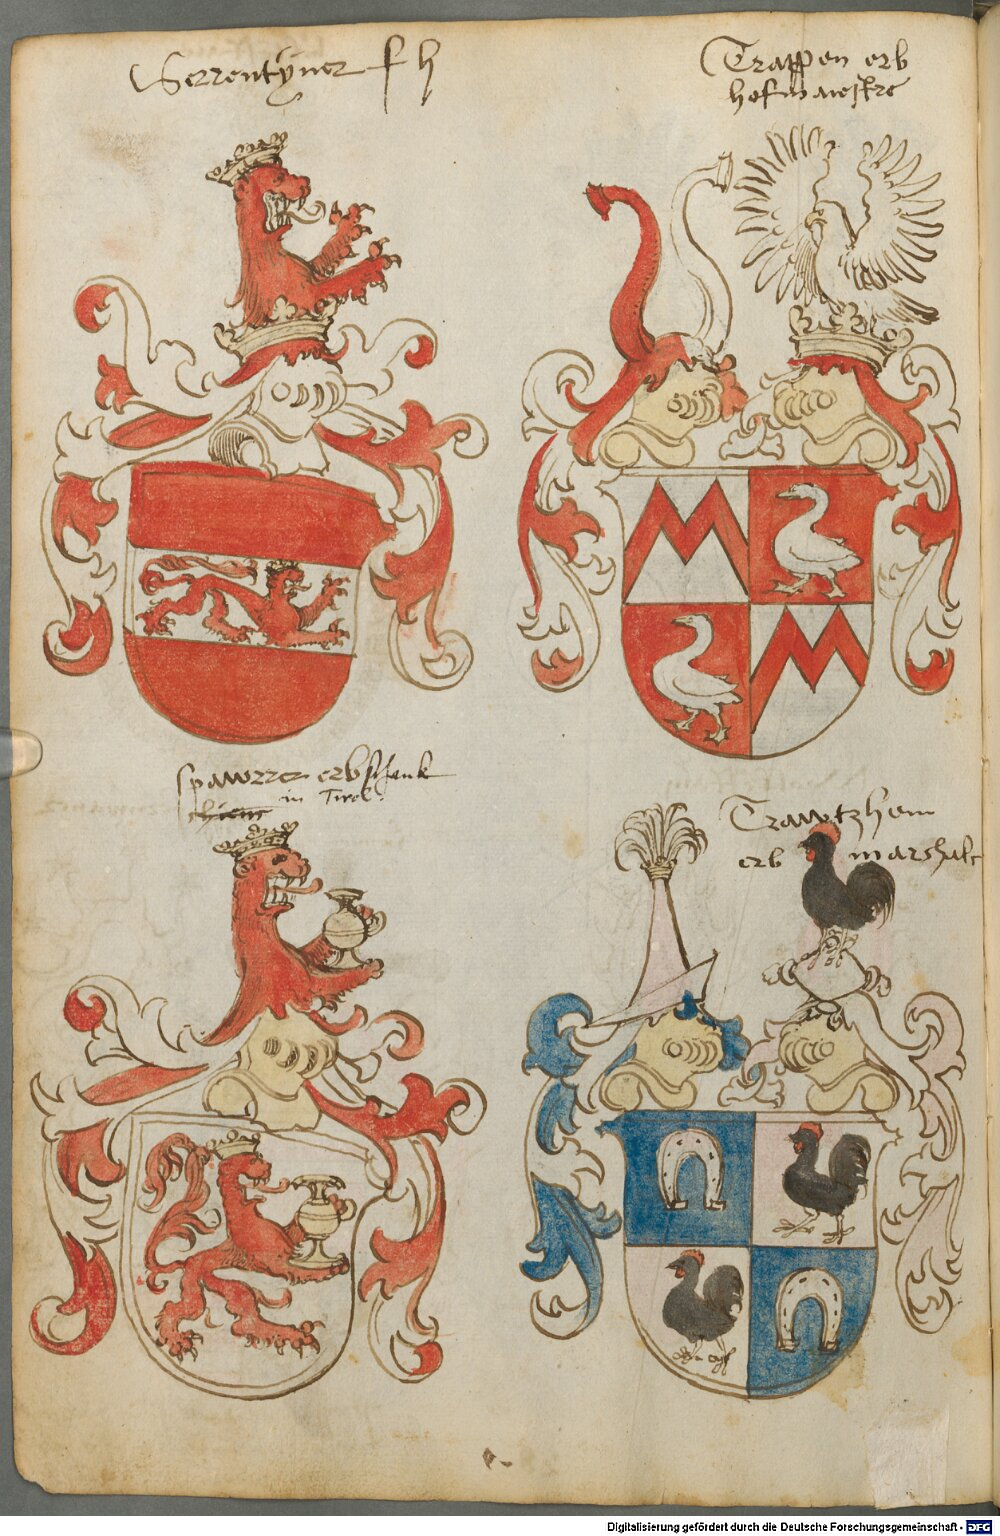 Serrentÿner f h
Trappen erb
hofmaistre
spawrer erbschenk
in Tirol
Trawtzhem
erb marshalc
Digitalisierung gefördert durch die Deutsche Forschungsgemeinschaft - DFG